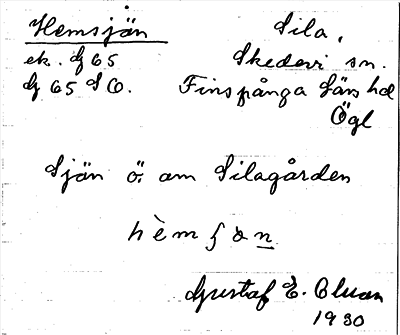 Hemsjön Sila,
ek. G 65 Skedevi sn.
G 65 SO. Finspånga läns hd
Ögl
Sjön ö. om Silagården
hèmʃon
Gustaf E.
1930